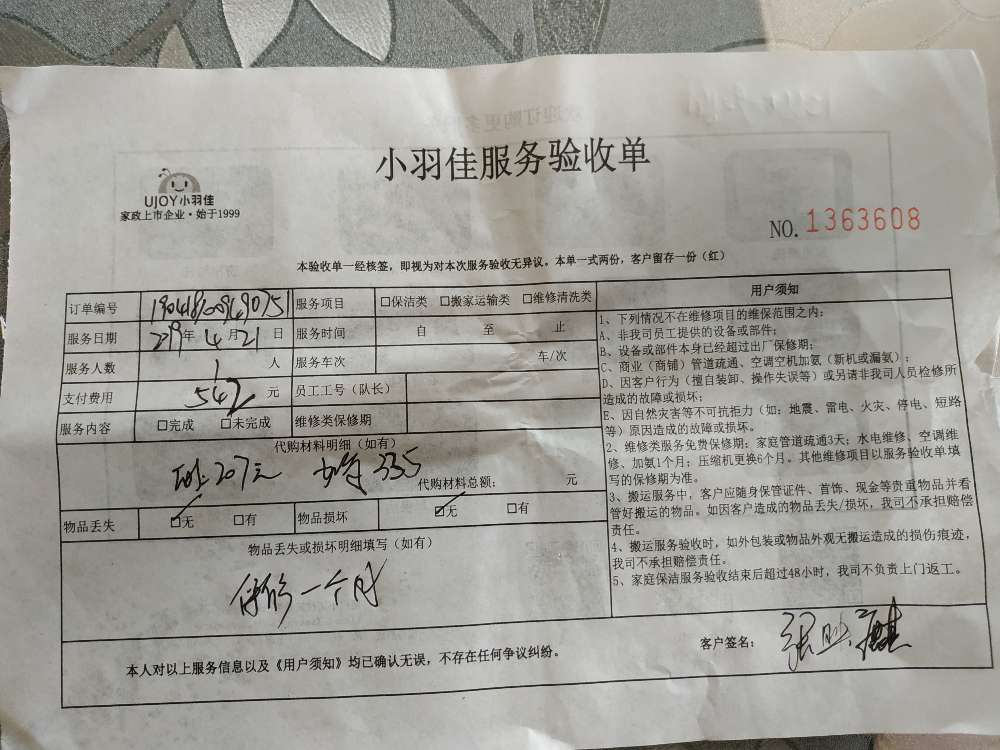 小羽佳服务验收单
UJOY小羽佳
家政上市企业·始于1999
NO. 1363608
本验收单一经核签，即视为对本次服务验收无异议。本单一式两份，客户留存一份（红）
订单编号 服务项目 □保洁类 □搬家运输类 □维修清洗类
服务日期 2019年 4月 21日 服务时间 自 至 止
服务人数 1 人 服务车次 车/次
支付费用 542 元 员工工号（队长）
服务内容 □完成 □未完成 维修类保修期
代购材料明细（如有）
207元 335 代购材料总额： 元
物品丢失 ☑无 □有 物品损坏 ☑无 □有
物品丢失或损坏明细填写（如有）
保修一个月
用户须知
1、下列情况不在维修项目的维保范围之内：
A、非我司员工提供的设备或部件；
B、设备或部件本身已经超过出厂保修期；
C、商业（商铺）管道疏通、空调空机加氨（新机或漏氨）；
D、因客户行为（擅自装卸、操作失误等）或另请非我司人员检修所
造成的故障或损坏；
E、因自然灾害等不可抗拒力（如：地震、雷电、火灾、停电、短路
等）原因造成的故障或损坏。
2、维修类服务免费保修期：家庭管道疏通3天；水电维修、空调维
修、加氨1个月；压缩机更换6个月。其他维修项目以服务验收单填
写的保修期为准。
3、搬运服务中，客户应随身保管证件、首饰、现金等贵重物品并看
管好搬运的物品。如因客户造成的物品丢失/损坏，我司不承担赔偿
责任。
4、搬运服务验收时，如外包装或物品外观无搬运造成的损伤痕迹，
我司不承担赔偿责任。
5、家庭保洁服务验收结束后超过48小时，我司不负责上门返工。
本人对以上服务信息以及《用户须知》均已确认无误，不存在任何争议纠纷。
客户签名：